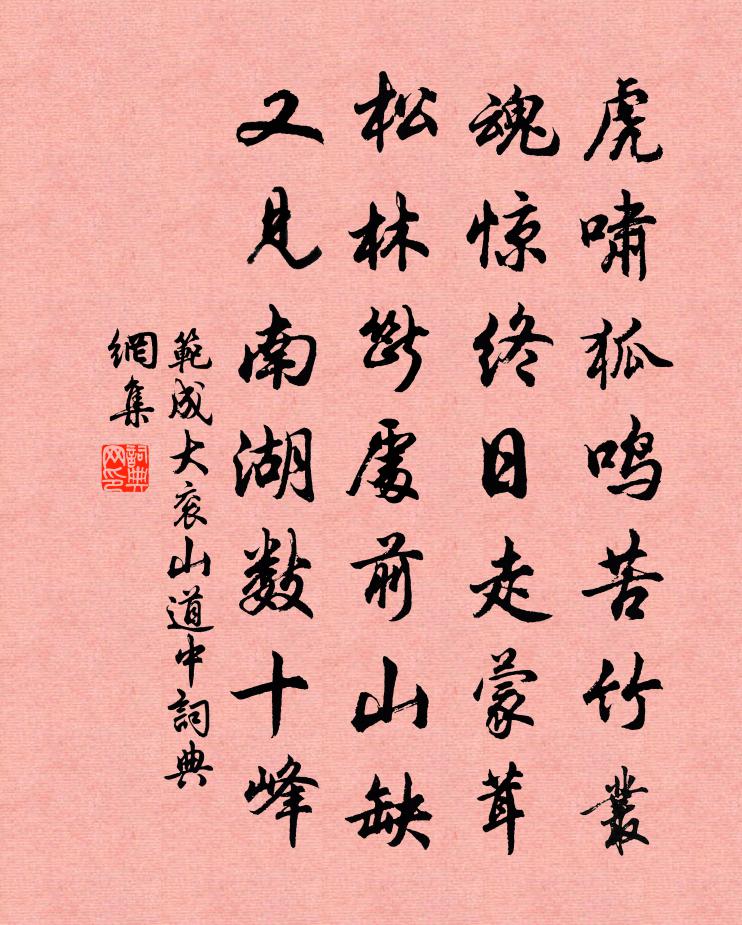 虎啸狐鸣苦竹叢
魂惊终日走蒙茸
松林断處前山缺
又见南湖数十峰
範成大衮山道中詞典
網集
詞典
网印